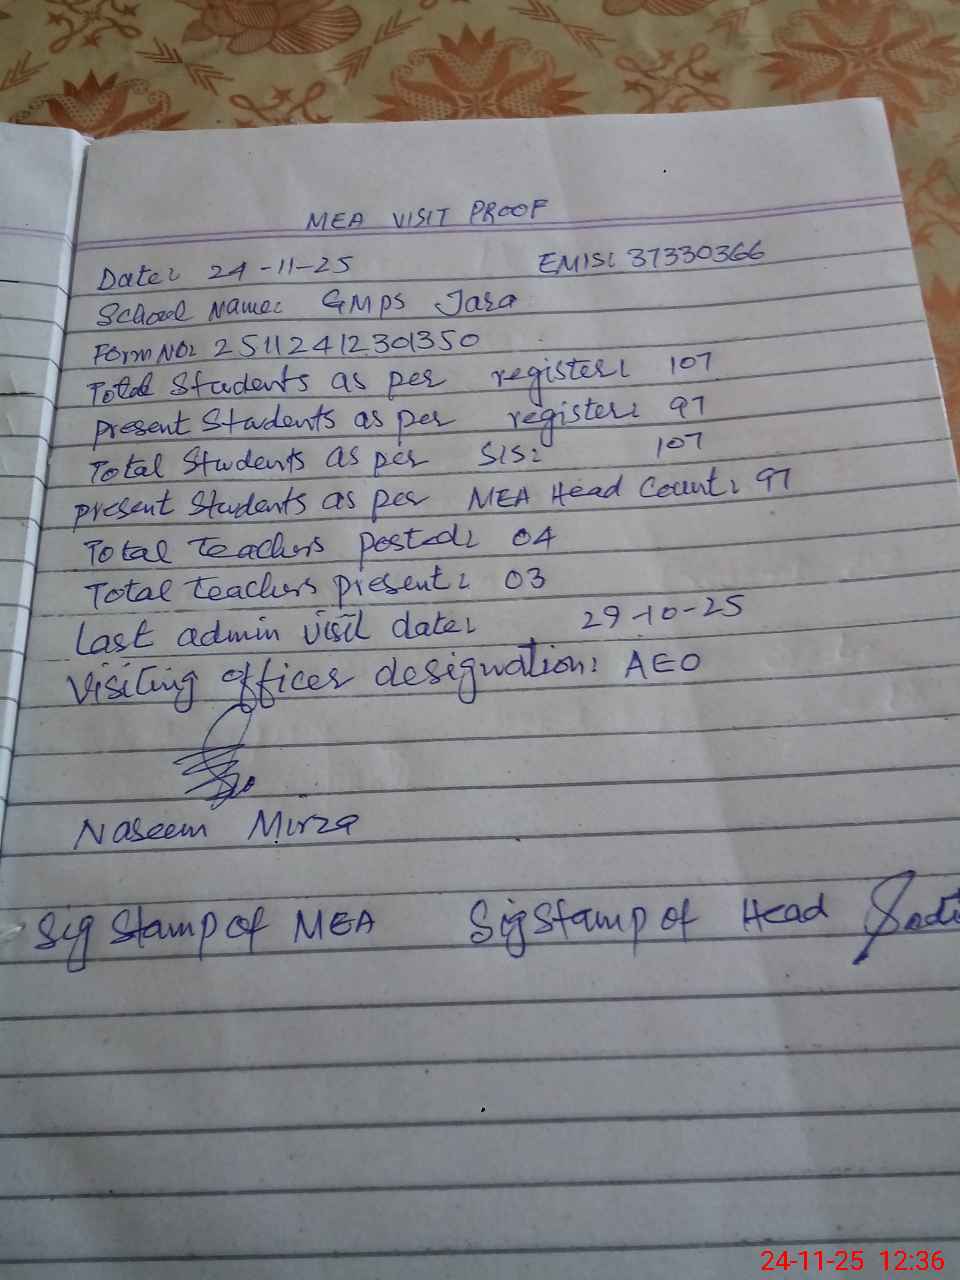 MEA VISIT PROOF
Date: 24-11-25 EMIS: 37330366
School Name: GMPS Jara
Form No: 25112412301350
Total Students as per register: 107
present Students as per register: 97
Total Students as per SIS: 107
present Students as per MEA Head Count: 97
Total teachers posted: 04
Total teachers present: 03
Last admin visit date: 29-10-25
Visiting officer designation: AEO
Naseem Mirza
Sig Stamp of MEA Sig Stamp of Head
24-11-25 12:36